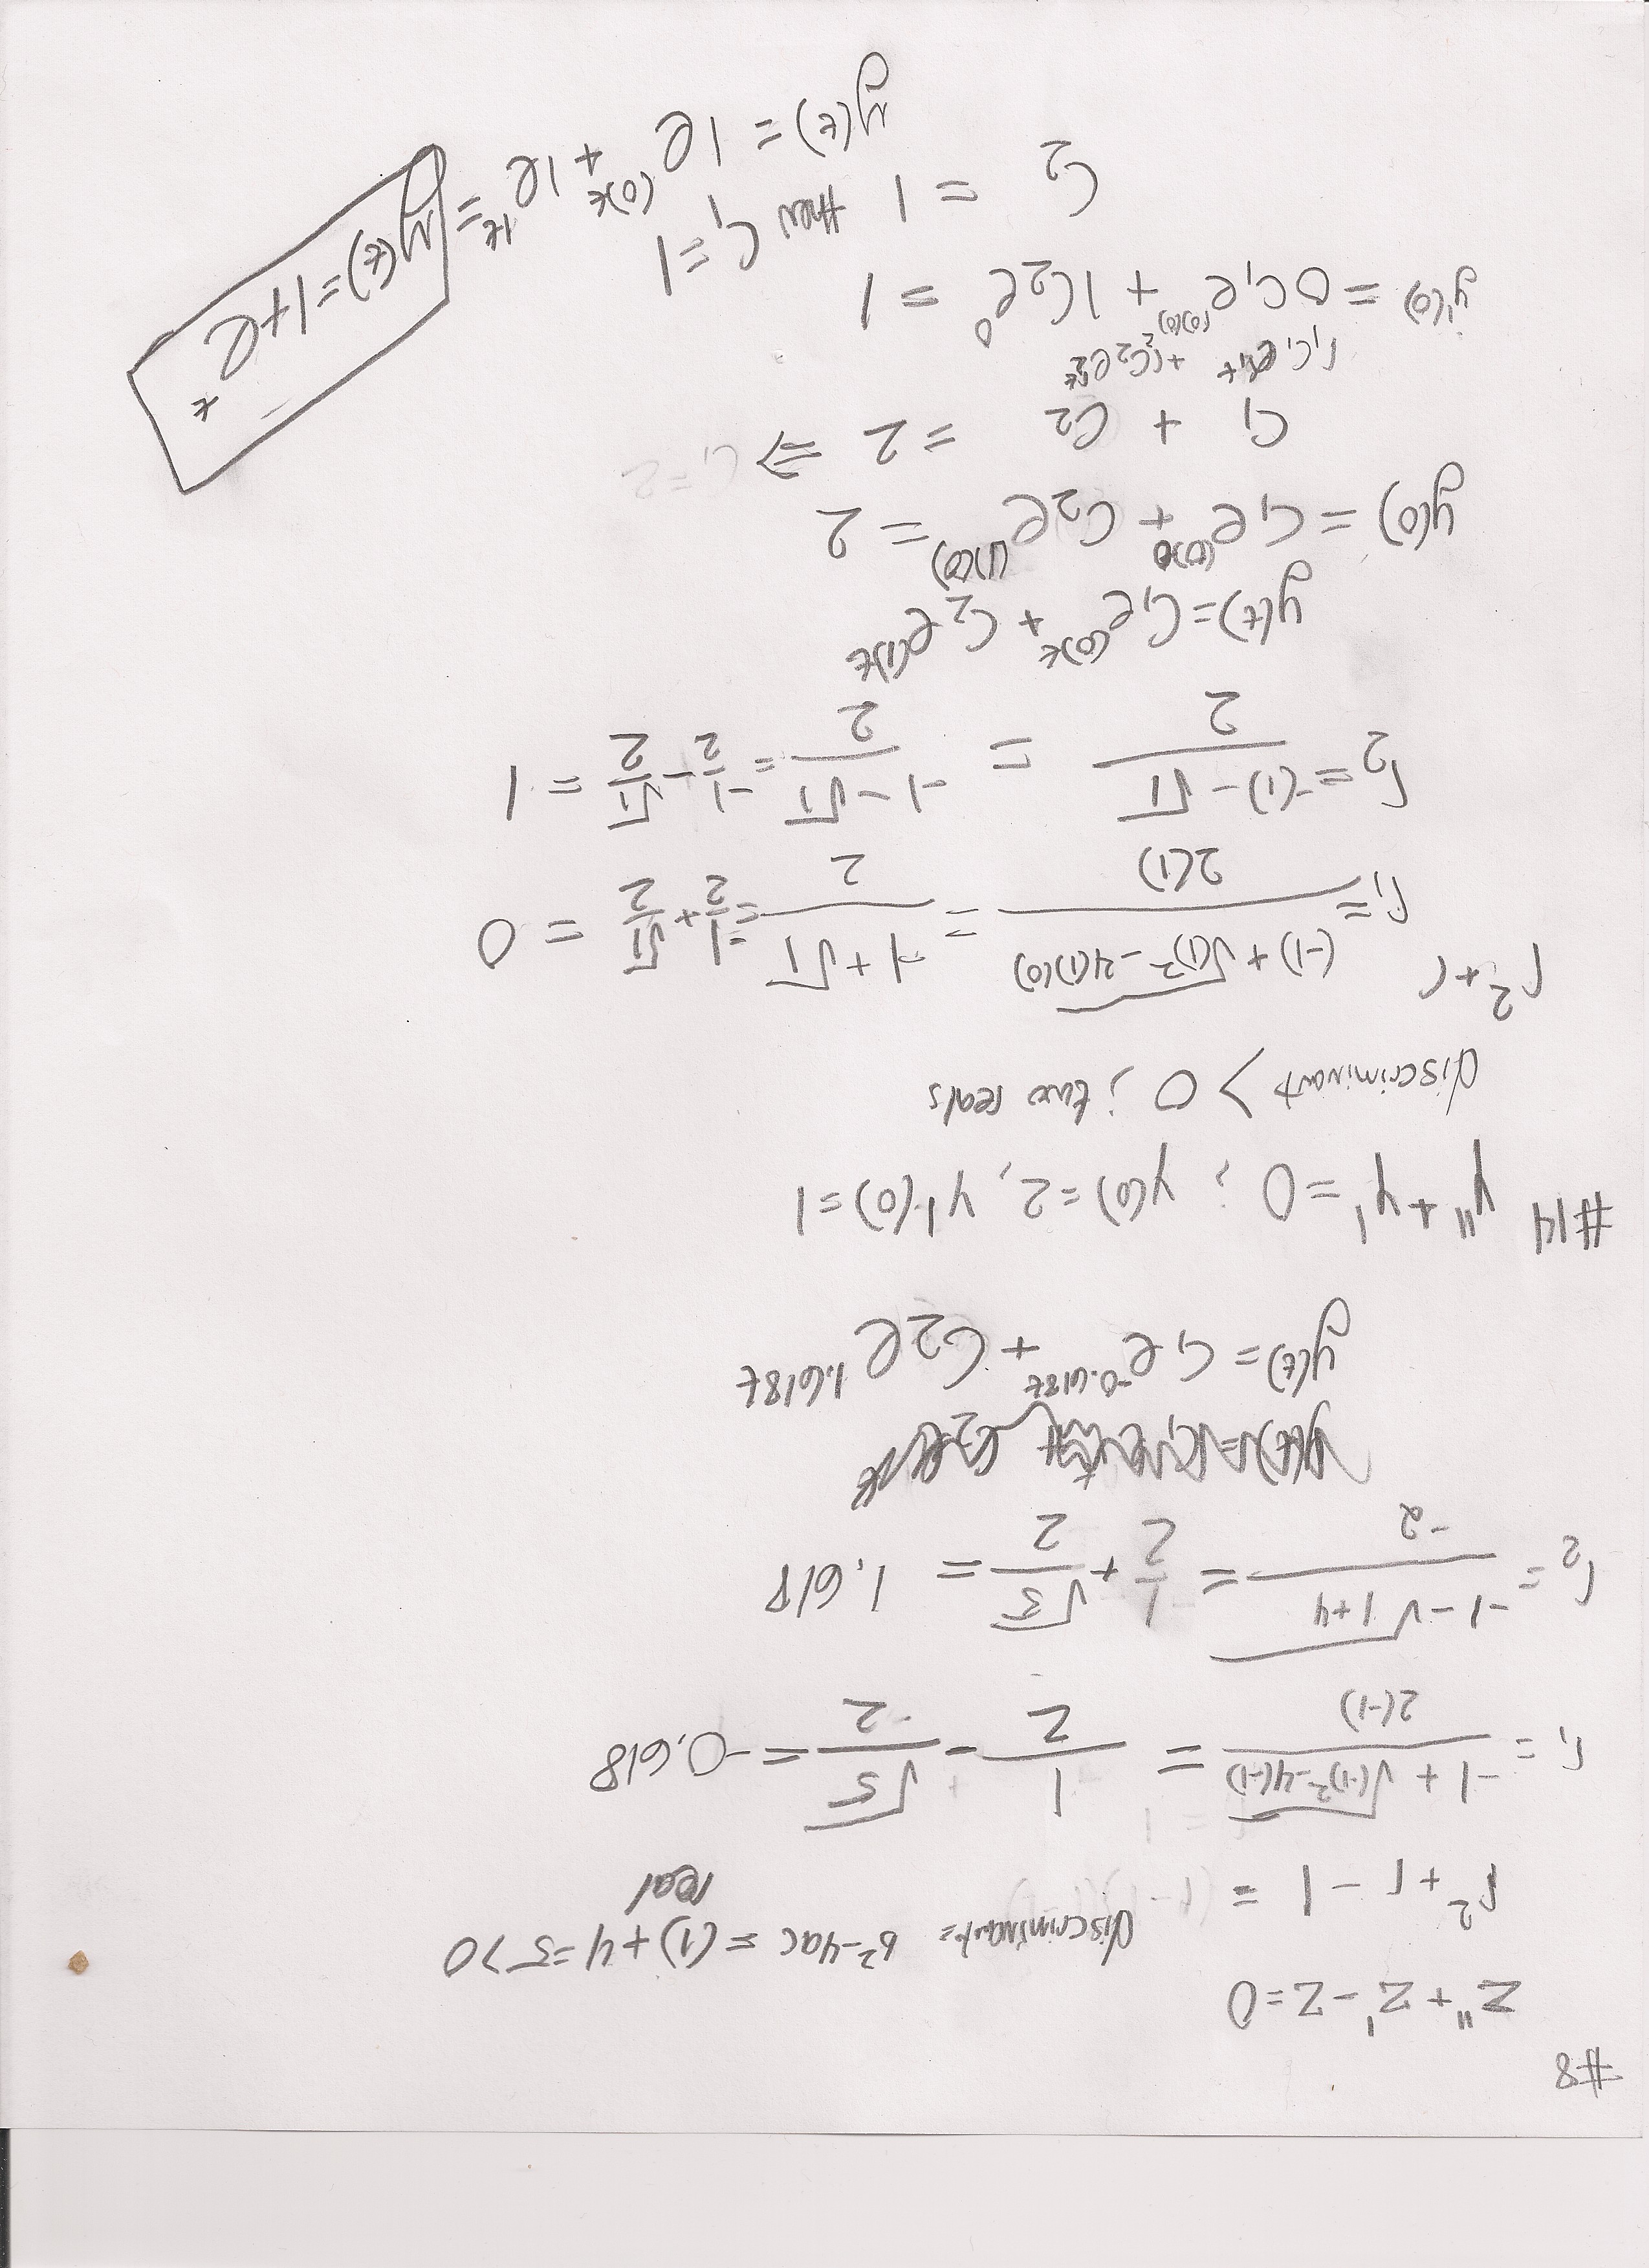 #8
z" + z' - z = 0
discriminant = b² - 4ac = (1) + 4 = 5 > 0
real
r² + r - 1 =
r₁ = (-1 + √((-1)² - 4(-1))) / 2(-1) = 1/2 - √5/2 = -0.618
r₂ = (-1 - √(1+4)) / -2 = 1/2 + √5/2 = 1.618
y(t) = c₁e^(-0.618t) + c₂e^(1.618t)
#14 y" + y' = 0 ; y(0) = 2, y'(0) = 1
discriminant > 0 ; two reals
r² + r
r₁ = ((-1) + √((1)² - 4(1)(0))) / 2(1) = (-1 + √1) / 2 = -1/2 + √1/2 = 0
r₂ = (-(1) - √1) / 2 = (-1 - √1) / 2 = -1/2 - √1/2 = 1
y(t) = c₁e^((0)t) + c₂e^((1)t)
y(0) = c₁e^((0)0) + c₂e^((1)(0)) = 2
c₁ + c₂ = 2 ⇒ c₁ = 2
r₁c₁e^(r₁t) + r₂c₂e^(r₂t)
y'(0) = 0c₁e^((0)(0)) + 1c₂e^0 = 1
c₂ = 1 then c₁ = 1
y(t) = 1e^((0)t) + 1e^(1t) = y(t) = 1 + e^t